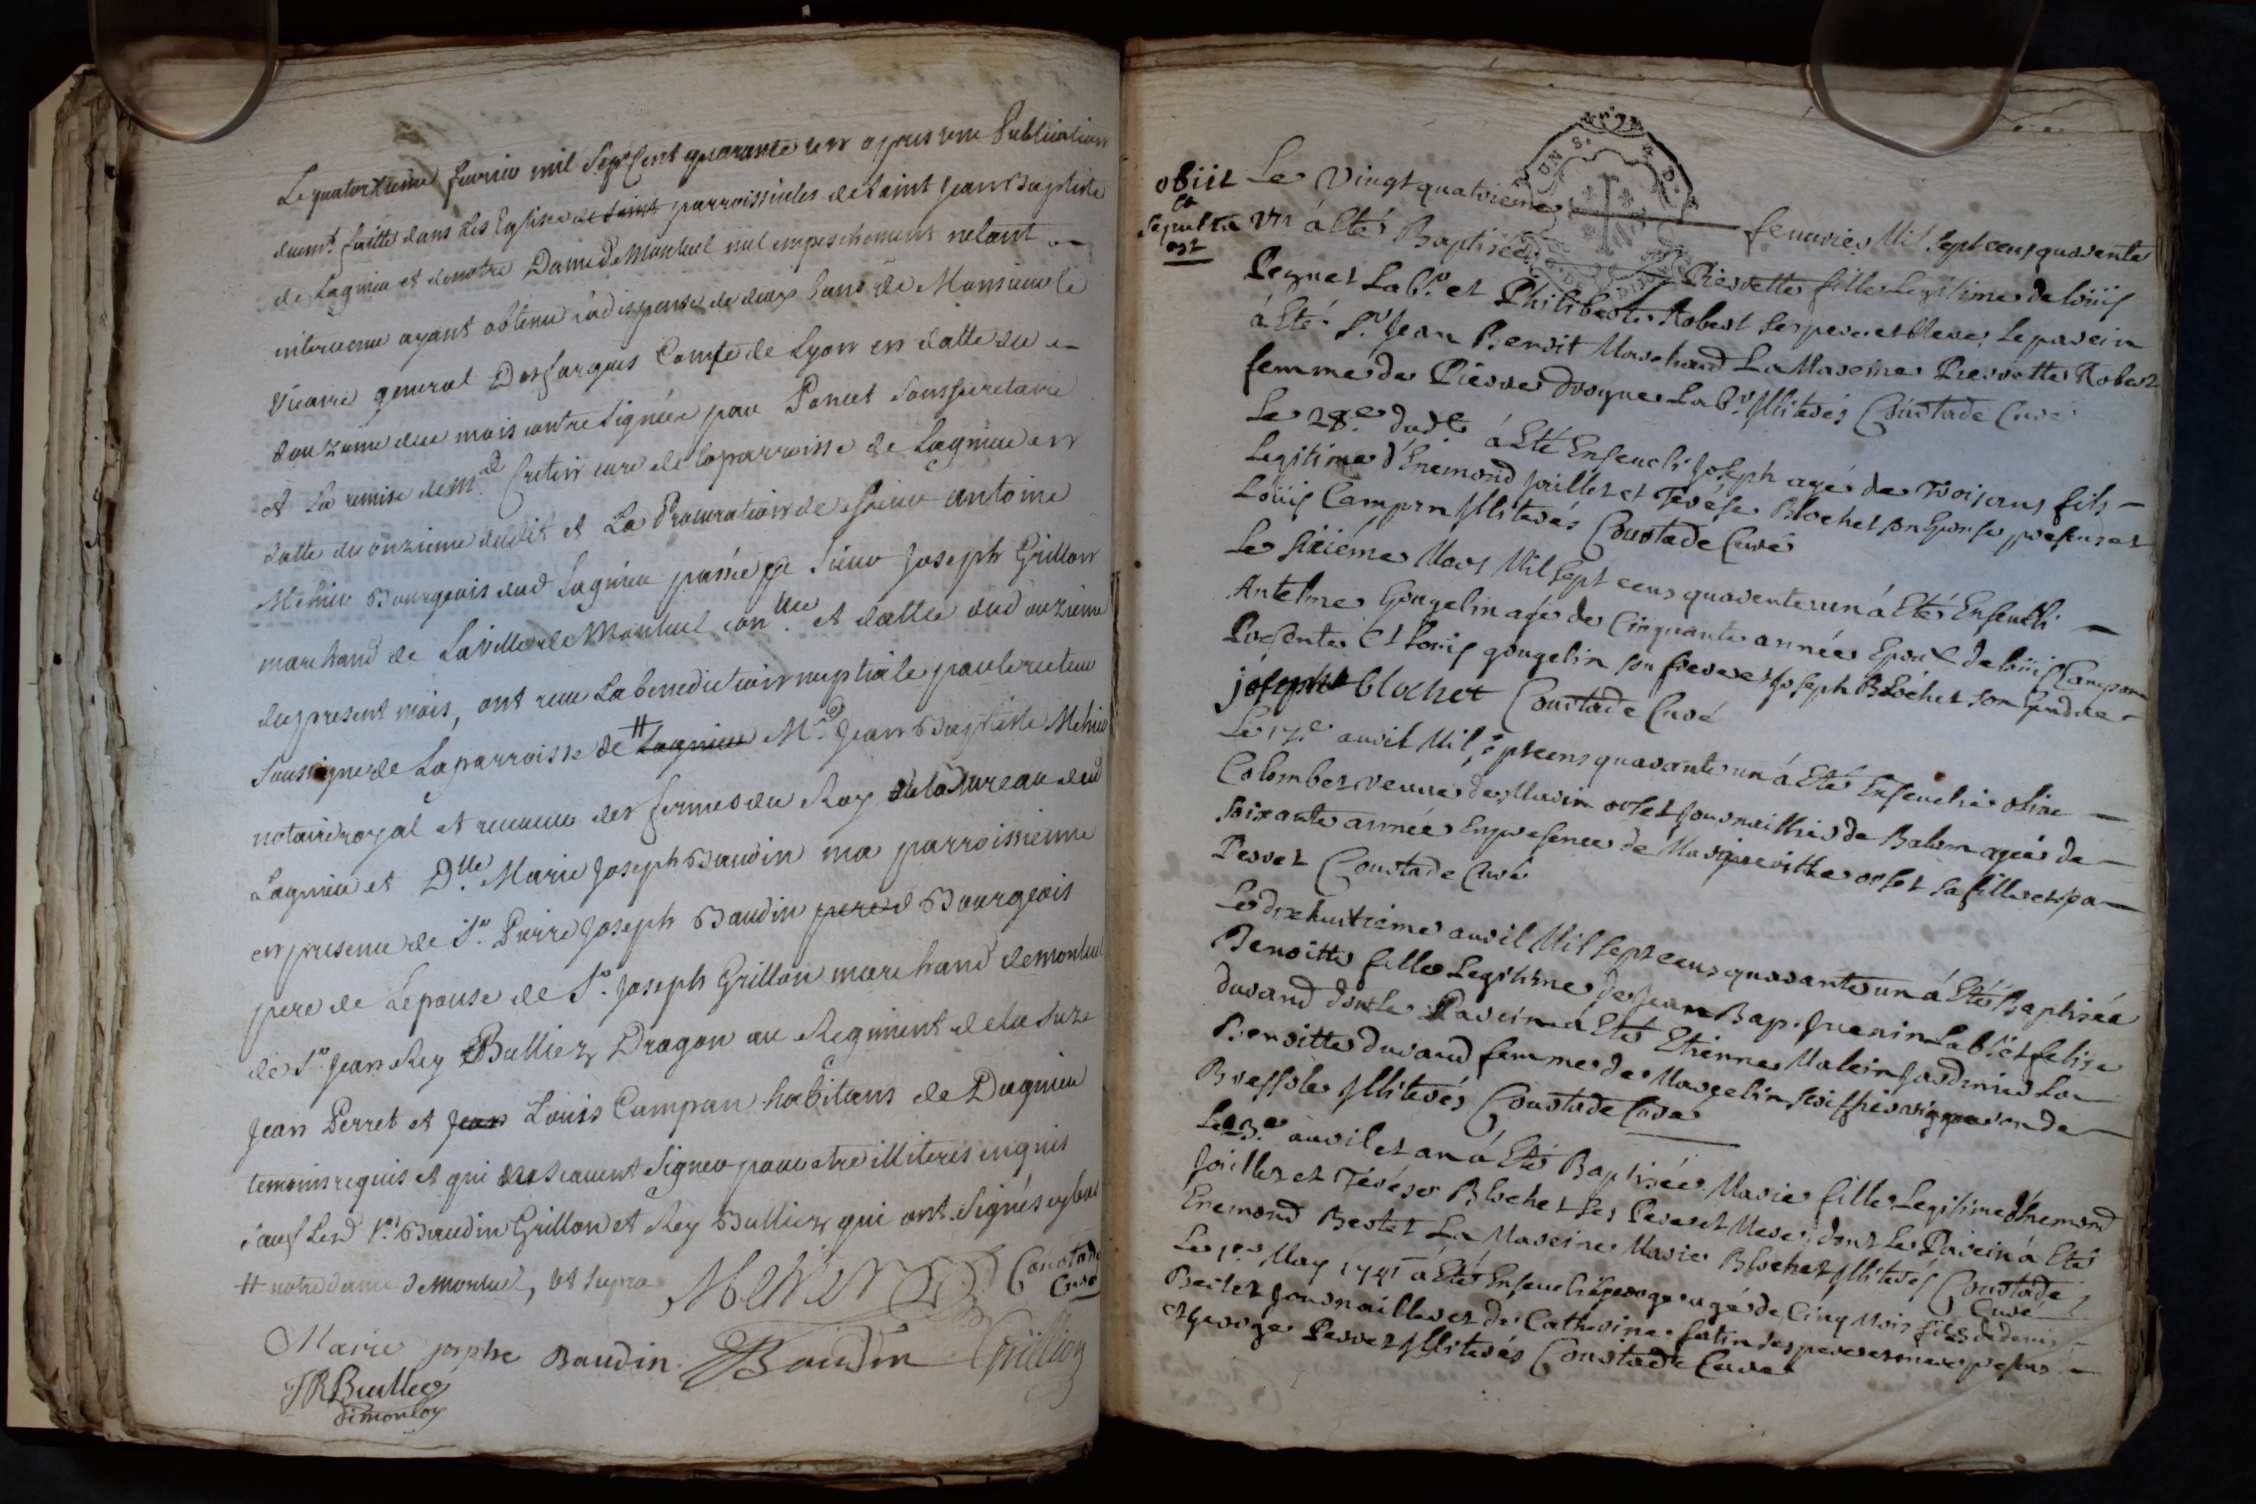 Le quatorzieme fevrier mil Sept Cent quarante un apres une Publication
duem.t faitte dans Les Eglises de Saint parroissiales de Saint Jean Baptiste
de Lagnieu et de notre Dame de Montluel nul empeschement netant
intervenue ayant obtenu la dispense de deux bans de Monsieur le
Vicaire general Desfargues Comte de Lyon en datte du
douzieme du mois contresignée par Poncet Soussecretaire
et La remise de m.r Cretin curé de la parroisse de Lagnieu en
datte du onzieme dudit et La Procuration de Sieur Antoine
Mehier Bourgeois dud Lagnieu passée Sieur Joseph Grillon
marchand de La Ville de Montluel et datte dud onzieme
du present mois, ont receu La benediction nuptiale par le recteur
Soussigné de La parroisse de # Lagnieu M.r Jean Baptiste Mehier
notaire royal et receveur des fermes du Roy de la Bureau dud
Lagnieu et D.lle Marie Joseph Baudin ma parroissienne
en presence de S.r Pierre Joseph Baudin pere d Bourgeois
pere de Lepouse de S.r Joseph Grillon marchand de montluel
de S.r Jean Rey Bulliez Dragon au Regiment de la Suze
Jean Perret et Jean Louis Campan habitans de Dagnieu
temoins requis et qui ne scavent Signer pour etre illiterés enquis
sauf Lesd S.rs Baudin Grillon et Rey Bullier qui ont Signés
# notre dame de montluel, ut supra Mehier Coustade
Curé
Marie josphe Baudin Baudin Grillion
JRBullier
obiit
et
sepulta
est
Le vingt quatrieme fevurier Mil sept cens quarente
un á Eté Baptisée Pierrette fille Legitime de Loüis
Peguet Lab.r et Philiberte Robert ses pere et Mere, Le parein
á Eté S.r Jean Benoit Marchand La Mareine Pierrette Robert
femme de Pierre drogue Lab.r Illiterés Coustade Curé
Le 28.e dud.t á Eté Enseveli Joseph agé de trois ans fils
Legitime d'Enemond Juillet et Terése Blochet son Epouse presens et
Loüis Campan Illiterés Coustade Curé
Le sixiéme Mars Mil sept cens quarente un á Eté Enseveli
Antelme Gougelin agé de Cinquante année Epoux de Loüis Campan
Presente Et Loüis gougelin son frere et Joseph Blochet son gendre
joseph blochet Coustade Curé
Le 17.e avril Mil sept cens quarante un á Eté Ensevelie
Colombet veuve de Marin orset Journaillier de Balan agée de
soixante année En presence de Marguerithe orset sa fille et
Perret Coustade Curé
Le dixhuitiéme avril Mil sept cens quarante un á Eté Baptisée
Benoitte fille Legitime de Jean Bap. Juenin Lab.r et felise
durand dont Le Parein á Eté Etienne Malein Jardinier La
Benoitte durand femme de Marcelin de
Bressole Illiterés Coustade Curé
Le 23.e avril et an á Eté Baptisée Marie fille Legitime d'Enemond
Juillet et Térése Blochet ses Pere et Mere, dont Le Parein á Eté
Enemond Bertet La Mareine Marie Blochet Illiterés Coustade
Curé
Le 1.er May 1741 á Eté Enseveli george agé de Cinq Mois fils de denis
Beitet Journaillier et de Catherine ses pere et mere presens
et george Perret Illiterés Coustade Curé